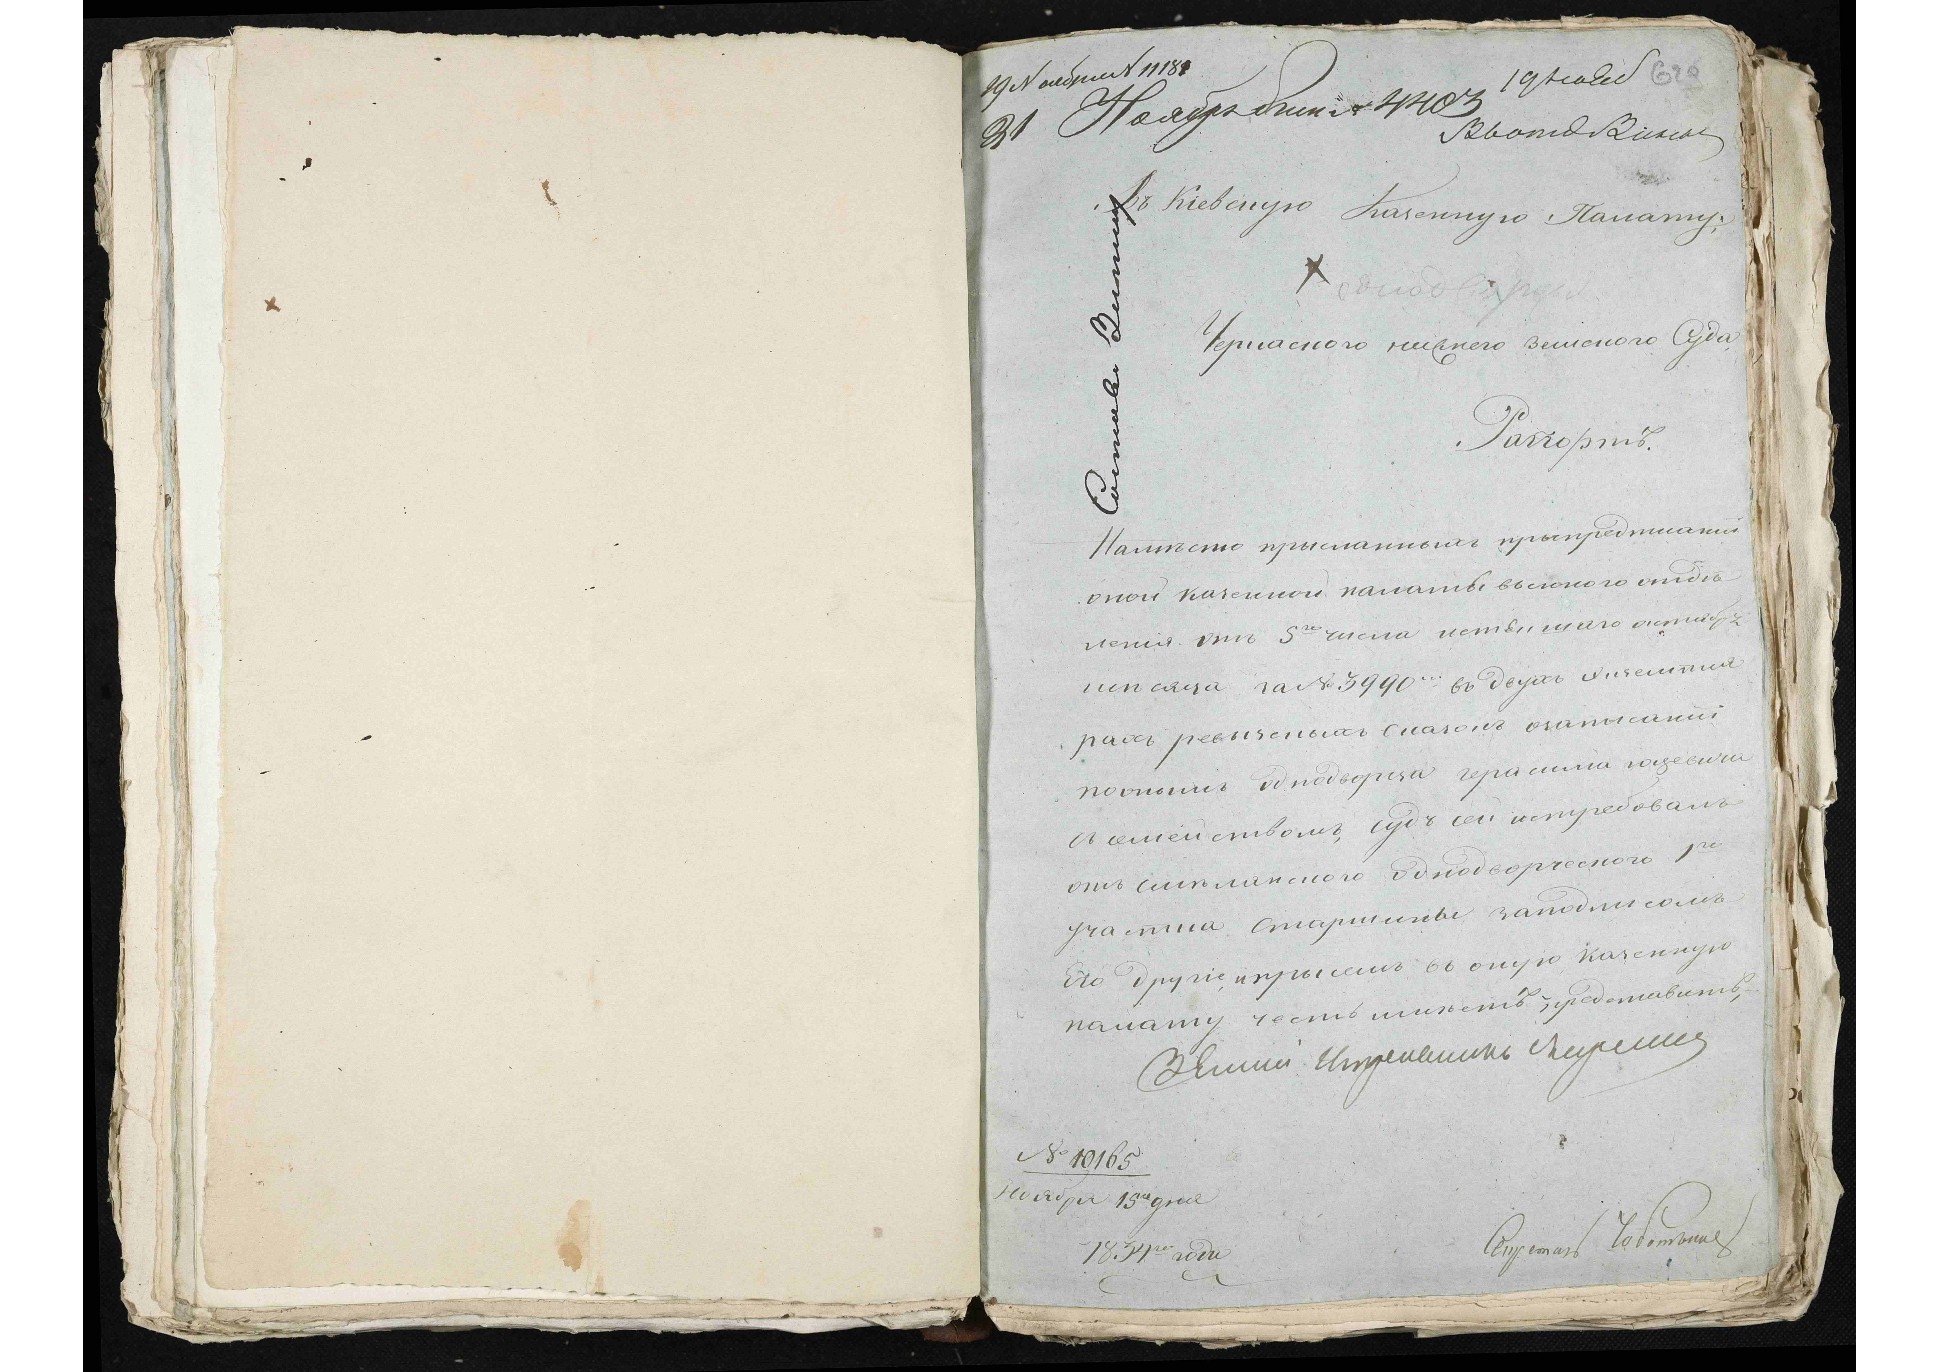 19 Ноября N 11181
21 Ноября 4403
19 Нояб
626
Въ Кіевскую Казенную Палату,
Черкаского нижнего земского Суда
Раппортъ.
Наместо присланныхъ прыпредписаніи
оной казенной палаты ... отдѣ
ленія отъ 5го числа истекшаго октября
месяца за № 3990мъ въ двухъ экземпля
рахъ ревызскыхъ сказокъ озаписаніи
поонымъ однодворца герасима юцевича
съ семействомъ, судъ сей истребовалъ
отъ смелянского однодворческого 1го
участка старшины заподписомъ
Его другіе, и прысемъ въ оную казенную
палату честь имѣетъ представить,
№ 10165
Ноября 15го дня
1834го года
Секретарь